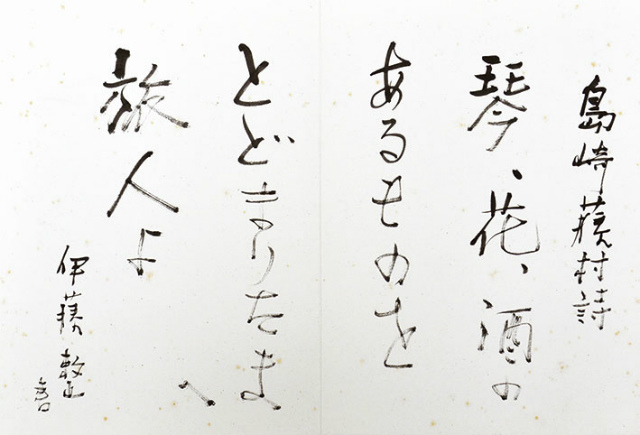 島崎藤村詩
琴、花、酒の
あるものを
とどまりたまへ
旅人よ
伊藤整書